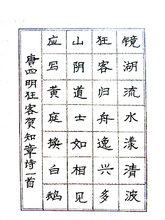 镜湖流水漾清波
狂客归舟逸兴多
山阴道士如相见
应写黄庭换白鹅
唐四明狂客贺知章诗一首